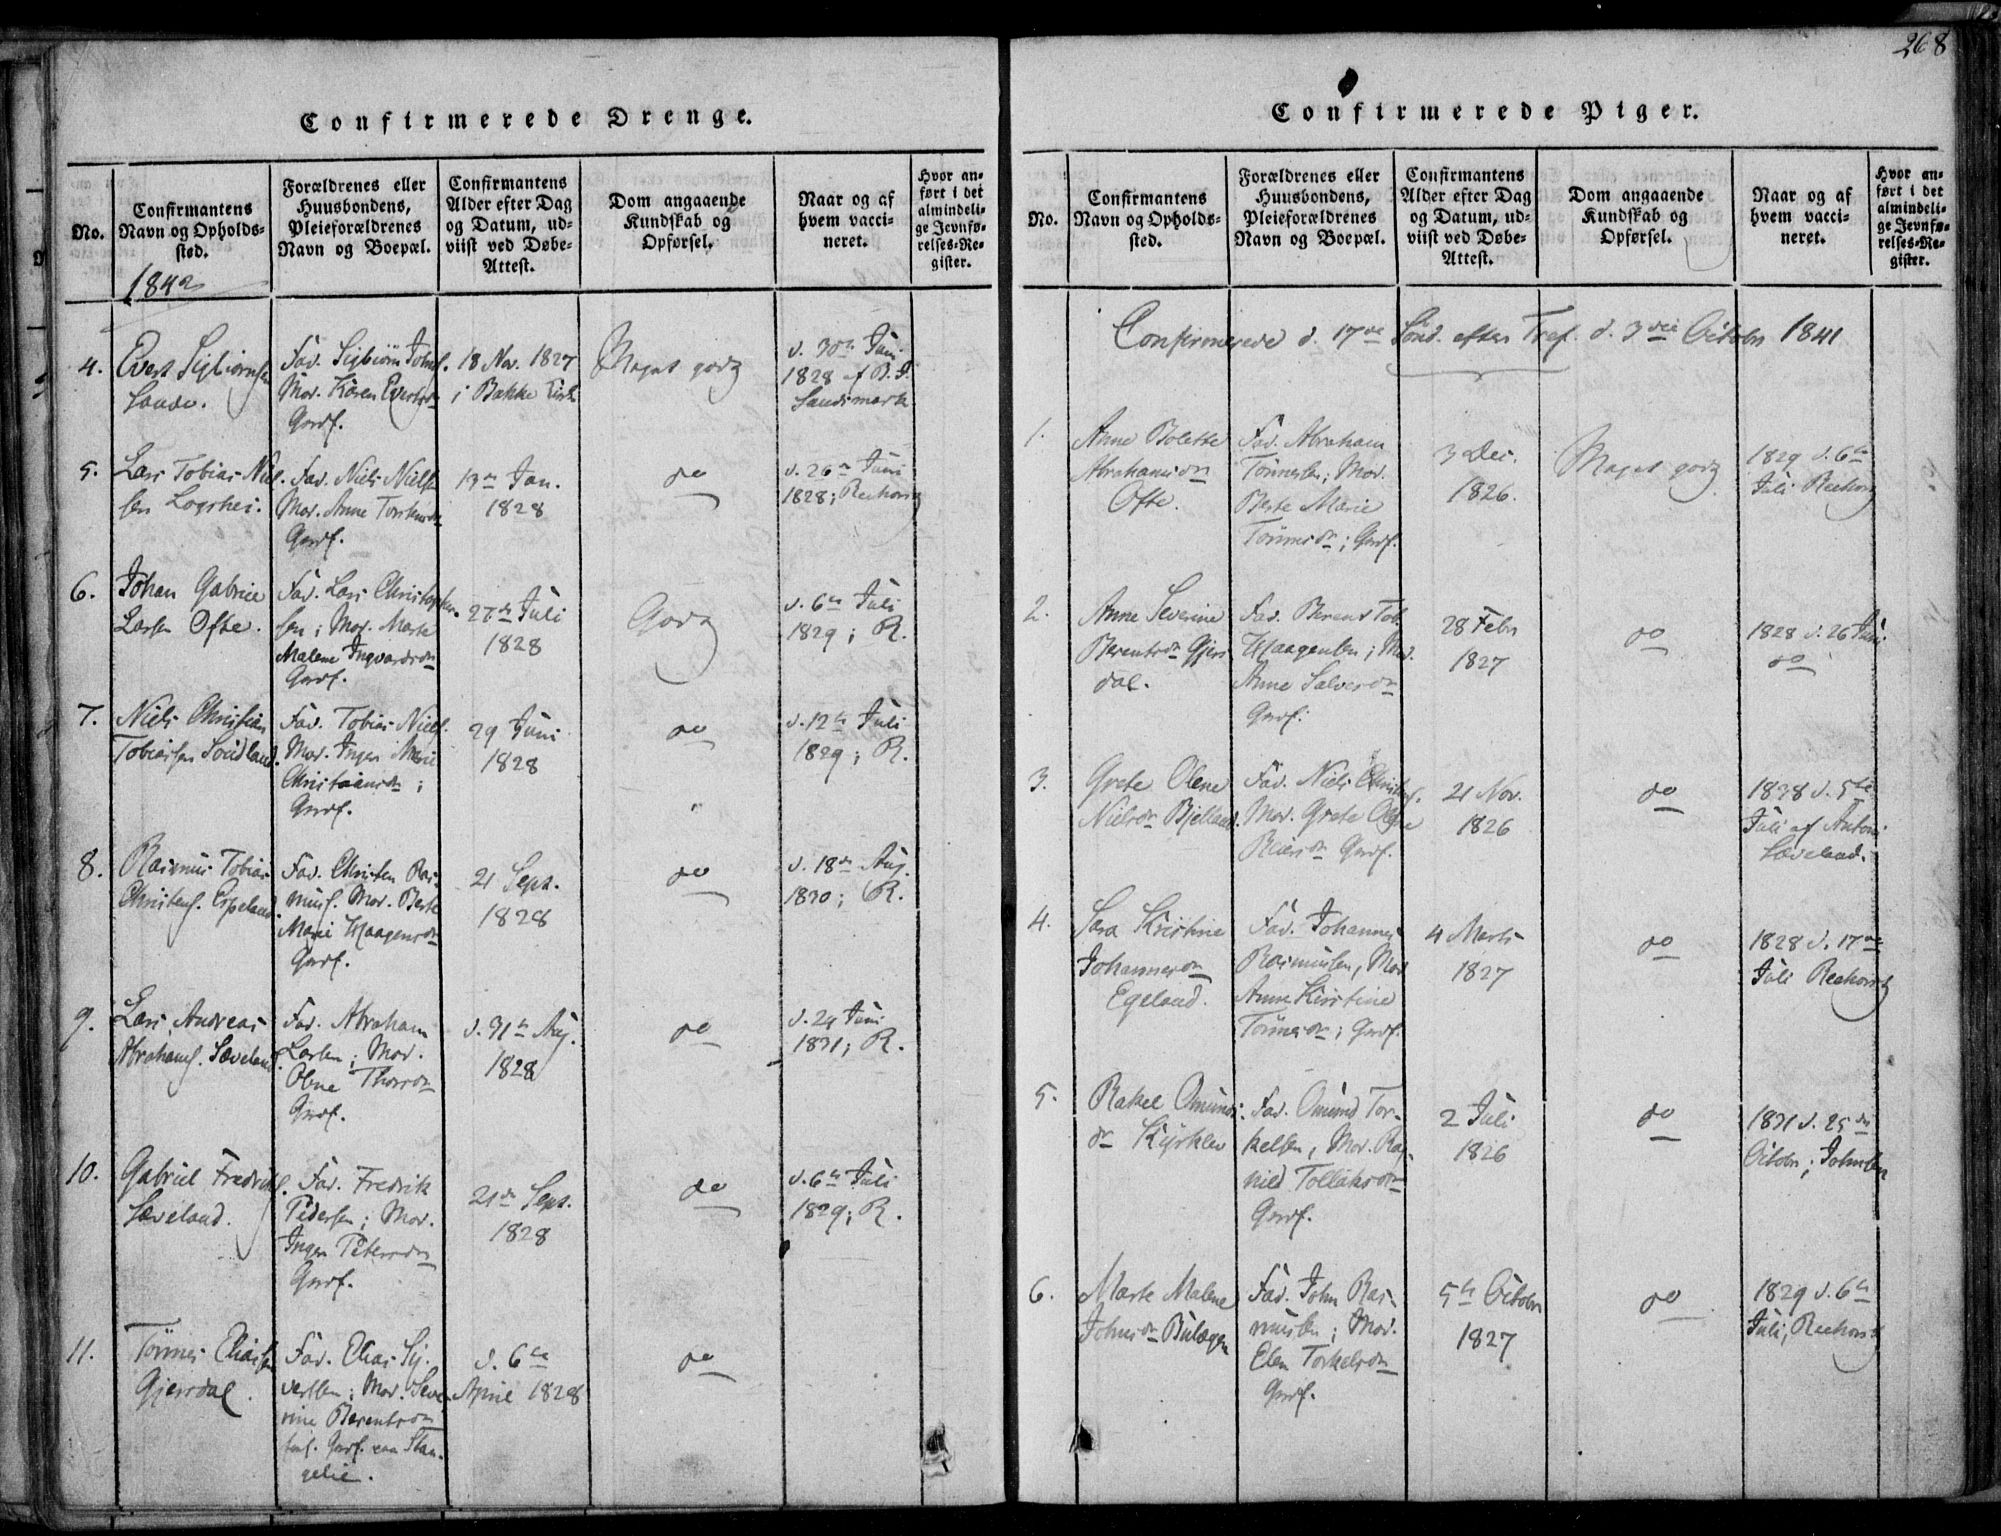 268
Confirmerede Drenge.
No.
Confirmantens
Navn og Opholds-
sted.
Forældrenes eller
Huusbondens,
Pleieforældrenes
Navn og Boepæl.
Confirmantens
Alder efter Dag
og Datum, ud-
viist ved Døbe-
Attest.
Dom angaaende
Kundskab og
Opførsel.
Naar og af
hvem vacci-
neret.
Hvor an-
ført i det
almindeli-
ge Jevnfø-
relses-Re-
gister.
1842
4.
Evert Sigbiørnsen
Sande.
Fad. Sigbiørn Johns.
Mod. Karen Evertsdr
Grdf.
18 Nov. 1827
i Bakke Kirk
Meget godt
d. 30te Juni
1828 af B. J.
Sandsmark
5.
Lars Tobias Niel-
sen Logshei.
Fad. Niels Niels.
Mod. Anne
Grdf.
13de Jan.
1828
do
d. 26de Juni
1828; Reehorst
6.
Johan Gabriel
Larsen Ofte.
Fad. Lars Christopher-
sen; Mod. Marte
Malene Ingvardsdr
Grdf.
27de Juli
1828
Godt
d. 6te Juli
1829; R.
7.
Niels Christian
Tobiassen Soudland.
Fad. Tobias Niels.
Mod. Inger Marie
Christiansdr;
Grdf.
29 Juni
1828
do
d. 12te Juli
1829; R.
8.
Rasmus Tobias
Christens. Espeland.
Fad. Christen Ras-
mus. Mod. Berte
Marie Haagensdr
Grdf.
21 Sept.
1828
do
d. 18de Aug.
1830; R.
9.
Lars Andreas
Abrahams. Sæveland.
Fad. Abraham
Larsen; Mod.
Olene Thorsdr
Grdf.
d. 31te Aug.
1828
do
d. 24 Juni
1831; R.
10.
Gabriel Fredriks.
Sæveland.
Fad. Fredrik
Pedersen; Mod.
Inger Petersdr
Grdf.
21de Sept.
1828
do
d. 6te Juli
1829; R.
11.
Tønnes Eliassen
Gjersdal.
Fad. Elias Sij-
vertsen; Mod. Seve-
rine Berentsdr
Grdf. paa Stan-
gelie.
d. 6te
April 1828
do
Confirmerede Piger.
No.
Confirmantens
Navn og Opholds-
sted.
Forældrenes eller
Huusbondens,
Pleieforældrenes
Navn og Boepæl.
Confirmantens
Alder efter Dag
og Datum, ud-
viist ved Døbe-
Attest.
Dom angaaende
Kundskab og
Opførsel.
Naar og af
hvem vacci-
neret.
Hvor an-
ført i det
almindeli-
ge Jevnfø-
relses-Re-
gister.
Confirmerede d. 17de Sønd. efter Tref. d. 3die Octobr 1841
1.
Anne Bolette
Abrahamsdr
Ofte.
Fad. Abraham
Tønnesen; Mod.
Berte Marie
Tønnesdr; Grdf.
3 Dec.
1826.
Meget godt
1829 d. 6te
Juli Reehorst
2.
Anne Severine
Berentsdr Gjers-
dal.
Fad. Berent Tob.
Haagensen; Mod.
Anne Salvesdr
Grdf.
28 Febr
1827
do
1828 d. 26 Juni
do
3.
Grete Olene
Nielsdr Bjelland.
Fad. Niels Christens.
Mod. Grete Olene
Grdf.
21 Nov.
1826
do
1838 d. 5te
Juli af Anton
Sæveland.
4.
Sara Kristine
Johannesdr
Egeland.
Fad. Johannes
Rasmussen, Mod
Anne Kirstine
Tønnesdr; Grdf.
4 Marts
1827
do
1828 d. 17de
Juli Reehorst
5.
Rakel Omunds-
dr Kyrklev
Fad. Omund Tor-
kelsen, Mod. Rag-
nild Tollaksdr
Grdf.
2 Juli
1826
do
1831 d. 25de
Octobr; Johnsen
6.
Marte Malene
Johnsdr Bulægen
Fad. John Ras-
mussen; Mod.
Elen Torkelsdr
Grdf.
5te Octobr
1827
do
1829 d. 6te
Juli, Reehorst